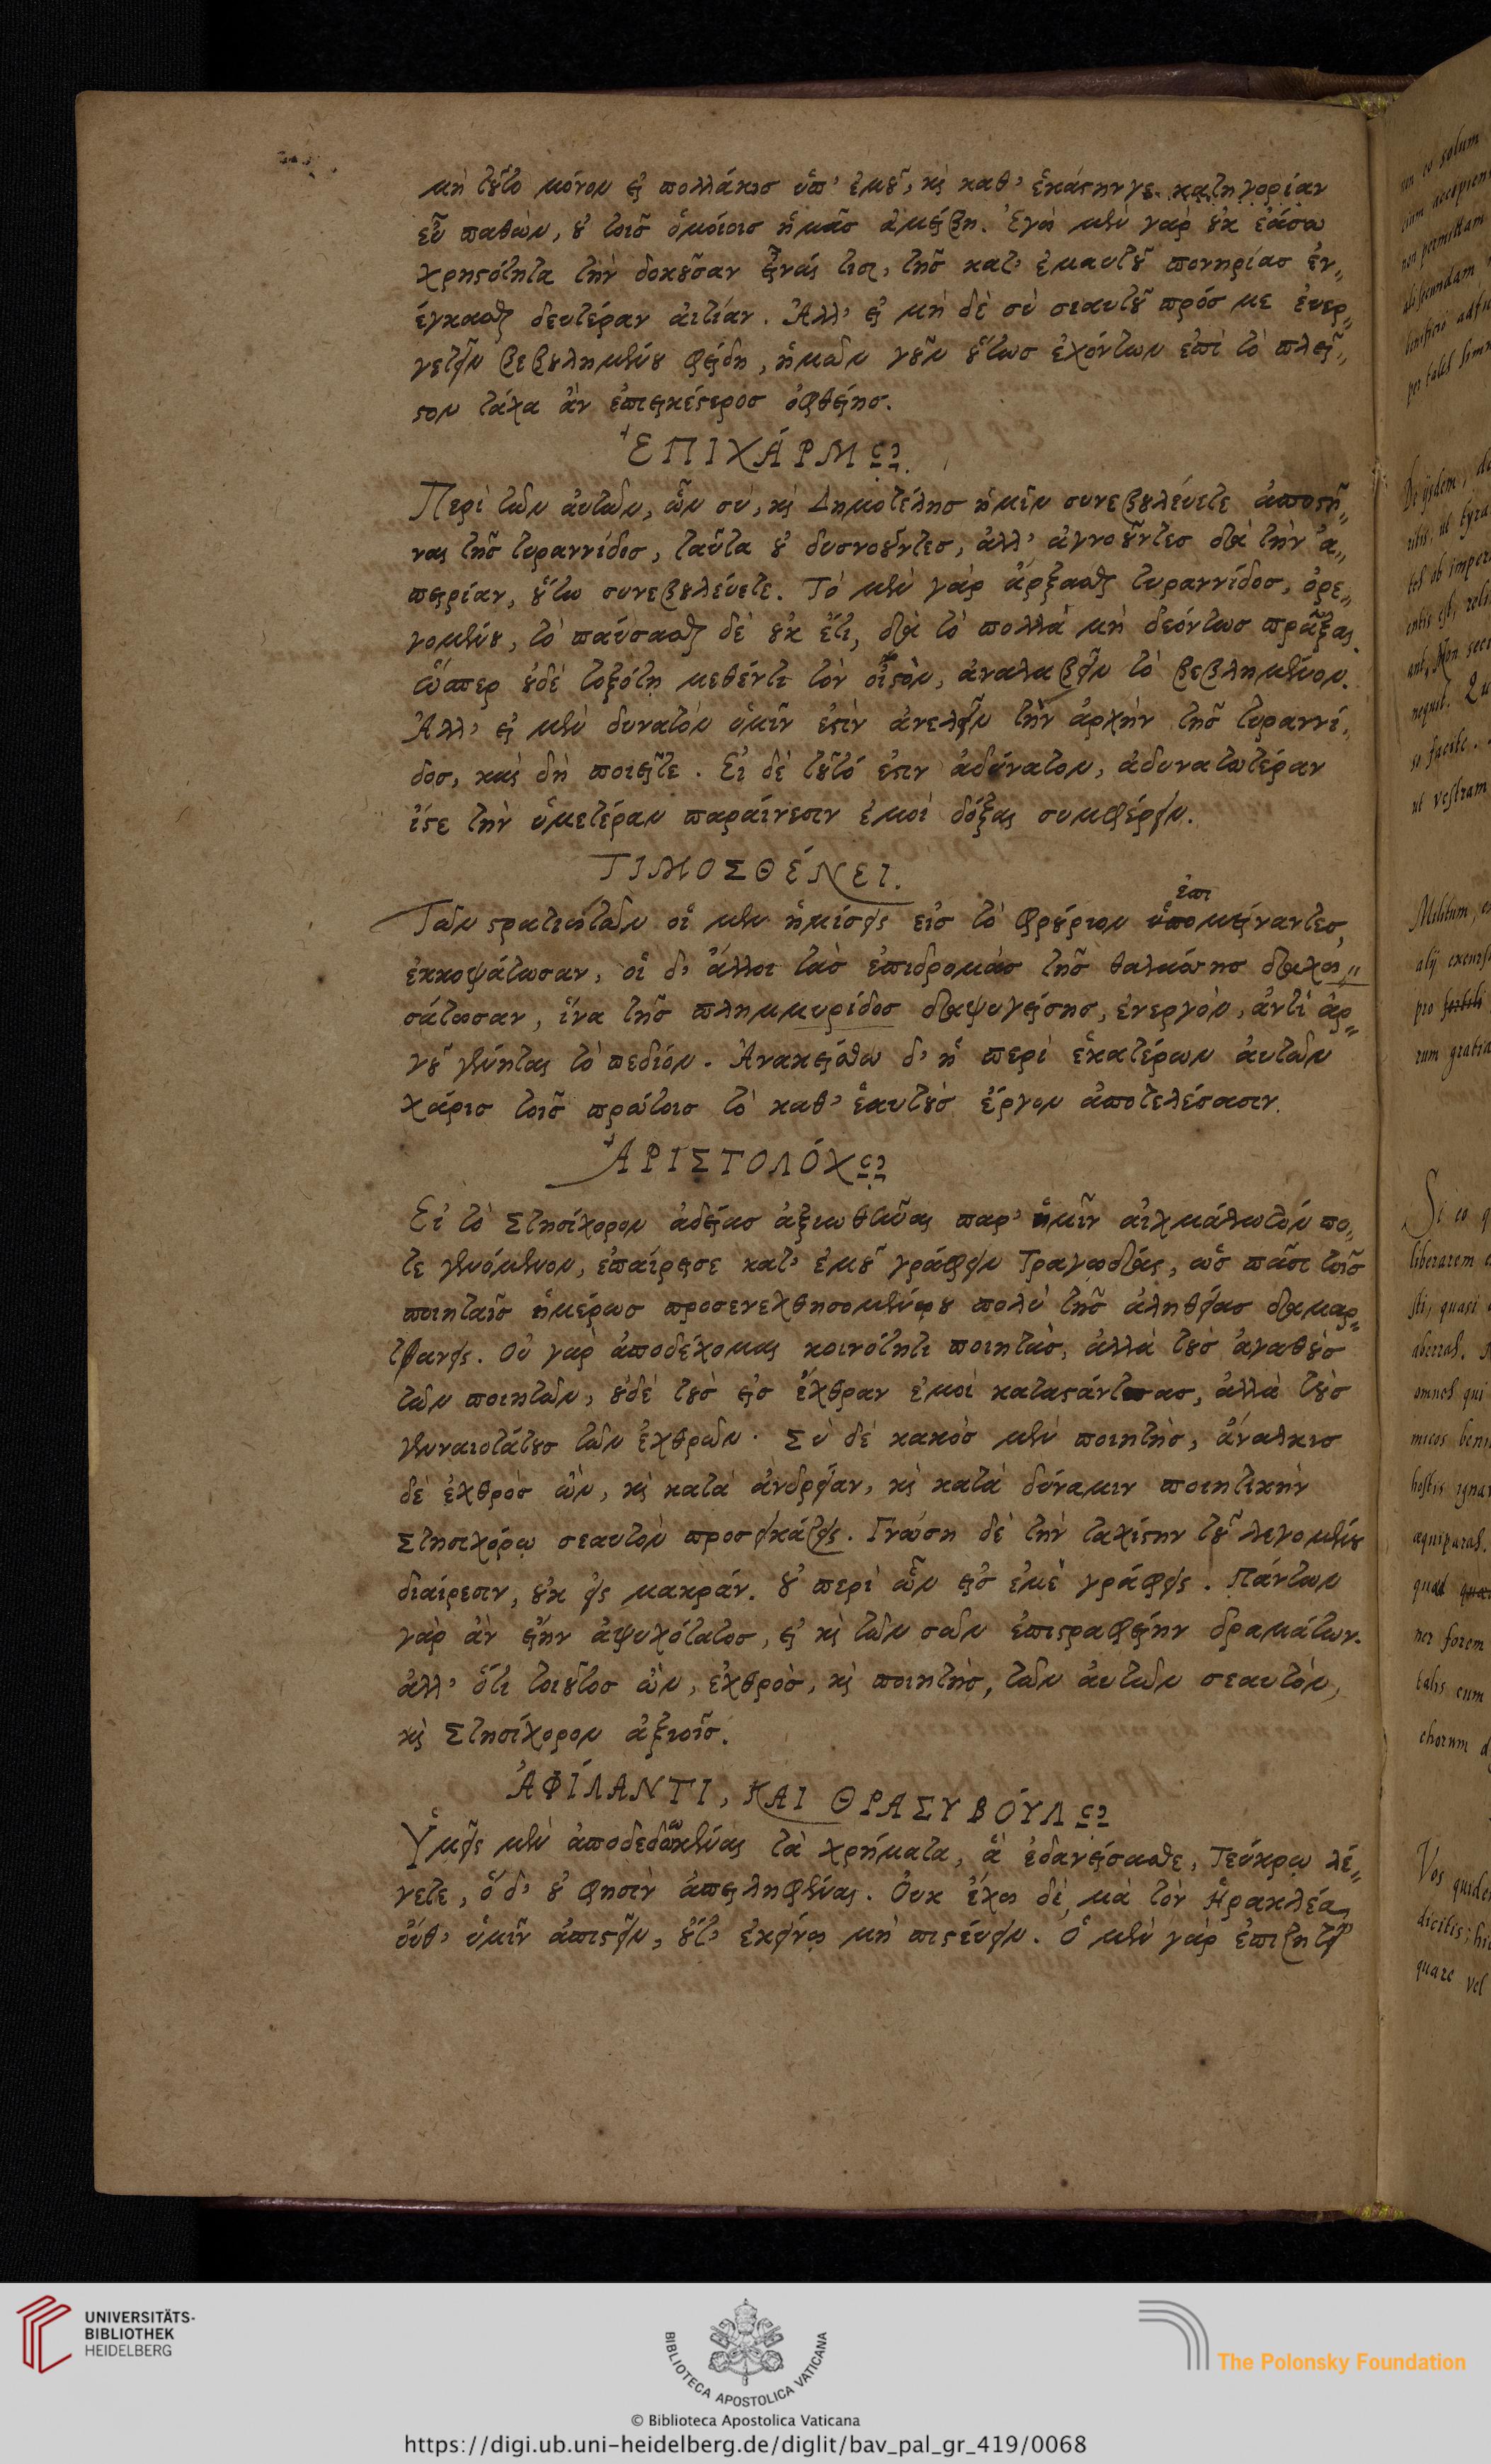 μὴ τοῦτο μόνον εἰ πολλάκις ὑπ' ἐμοῦ, καὶ καθ' ἑκάστην γε κατηγορίαν
εὖ παθὼν, οὐ τοῖς ὁμοίοις ἡμᾶς ἀμείβῃ. Ἐγὼ μὲν γὰρ οὐκ ἐάσω
χρηστότητα τὴν δοκοῦσαν εἶναί τισι, τῆς κατ' ἐμαυτοῦ πονηρίας ἐν-
έγκασθαι δευτέραν αἰτίαν. Ἀλλ' εἰ μὴ δὲ σὺ σεαυτοῦ πρός με ἐυερ-
γετεῖν βεβουλημένου φείδῃ, ἡμῶν γοῦν οὕτως ἐχόντων ἐπὶ τὸ πλεῖ-
στον τάχα ἂν ἐπιεικέστερος ὀφθείης.
ἘΠΙΧΆΡΜΩ.
Περὶ τῶν ἀυτῶν, ὧν σύ, καὶ Δημοτέλης ἡμῖν συνεβουλέυετε ἀποστῆ-
ναι τῆς τυραννίδος, ταῦτα οὐ δυσνοοῦντες, ἀλλ' ἀγνοοῦντες διὰ τὴν ἀ-
πειρίαν, οὕτω συνεβουλέυετε. Τὸ μὲν γὰρ ἄρξασθαι τυραννίδος, ὀρε-
γομένου, τὸ παύσασθαι δὲ οὐκ ἔτι, διὰ τὸ πολλὰ μὴ δεόντως πρᾶξαι.
ὥσπερ οὐδὲ τοξότῃ μεθέντι τὸν οἰστὸν, ἀναλαβεῖν τὸ βεβλημένον.
Ἀλλ' εἰ μὲν δυνατὸν ὑμῖν ἐστὶν ἀνελεῖν τὴν ἀρχὴν τῆς τυραννί-
δος, καὶ δὴ ποιεῖτε. Εἰ δὲ τοῦτό ἐστιν ἀδύνατον, ἀδυνατωτέραν
ἴστε τὴν ὑμετέραν παραίνεσιν ἐμοὶ δόξαι συμφέρειν.
ΤΙΜΟΣΘΈΝΕΙ.
Τῶν στρατιωτῶν οἱ μὲν ἡμίσεις εἰς τὸ φρούριον ὑπομείναντες,
ἐπι
ἐκκοψάτωσαν, οἱ δ' ἄλλοι τὰς ἐπιδρομὰς τῆς θαλάσσης διαχω-
σάτωσαν, ἵνα τῆς πλημμυρίδος διαψυγείσης, ἐνεργὸν, ἀντὶ ἀρ-
γοῦ γένηται τὸ πεδιόν. Ἀνακείσθω δ' ἡ περὶ ἑκατέρων ἀυτῶν
χάρις τοῖς πρώτοις τὸ καθ' ἑαυτοὺς ἔργον ἀποτελέσασιν.
ἈΡΙΣΤΟΛΌΧΩ
Εἰ τὸ Στησίχορον ἀδείας ἀξιωθῆναι παρ' ἡμῖν αἰχμάλωτόν πο-
τε γενόμενον, ἐπαίρεισε κατ' ἐμοῦ γράφειν Τραγῳδίας, ὡς πᾶσι τοῖς
ποιηταῖς ἡμέρως προσενεχθησομένου πολὺ τῆς ἀληθείας διαμαρ-
τάνεις. Οὐ γὰρ ἀποδέχομαι κοινότητι ποιητὰς, ἀλλὰ τοὺς ἀγαθοὺς
τῶν ποιητῶν, οὐδὲ τοὺς εἰς ἔχθραν ἐμοὶ καταστάντας, ἀλλὰ τοὺς
γενναιοτάτους τῶν ἐχθρῶν. Σὺ δὲ κακὸς μὲν ποιητὴς, ἄναλκις
δὲ ἐχθρὸς ὢν, καὶ κατὰ ἀνδρείαν, καὶ κατὰ δύναμιν ποιητικὴν
Στησιχόρῳ σεαυτὸν προσεικάζεις. Γνώσῃ δὲ τὴν ταχίστην τοῦ λεγομένου
διαίρεσιν, οὐκ εἰς μακράν. οὐ περὶ ὧν εἰς ἐμὲ γράφεις. Πάντων
γὰρ ἂν εἴην ἀψυχότατος, εἰ καὶ τῶν σῶν ἐπιστραφείην δραμάτων.
ἀλλ' ὅτι τοιοῦτος ὢν, ἐχθρὸς, καὶ ποιητὴς, τῶν ἀυτῶν σεαυτὸν,
καὶ Στησίχορον ἀξιοῖς.
ἈΦΊΛΑΝΤΙ, ΚΑΙ ΘΡΑΣΥΒΟΎΛΩ
Ὑμεῖς μὲν ἀποδεδωκέναι τὰ χρήματα, ἃ ἐδανείσασθε, Τεύκρῳ λέ-
γετε, ὃ δ' οὔ φησὶν ἀπειληφέναι. Ὀυκ ἔχω δὲ, μὰ τὸν Ἡρακλέα,
οὔθ' ὑμῖν ἀπιστεῖν, οὔτ' ἐκείνῳ μὴ πιστέυειν. Ὁ μὲν γὰρ ἐπιζητεῖ
UNIVERSITÄTS-
BIBLIOTHEK
HEIDELBERG
BIBLIOTECA APOSTOLICA VATICANA
The Polonsky Foundation
© Biblioteca Apostolica Vaticana
https://digi.ub.uni-heidelberg.de/diglit/bav_pal_gr_419/0068